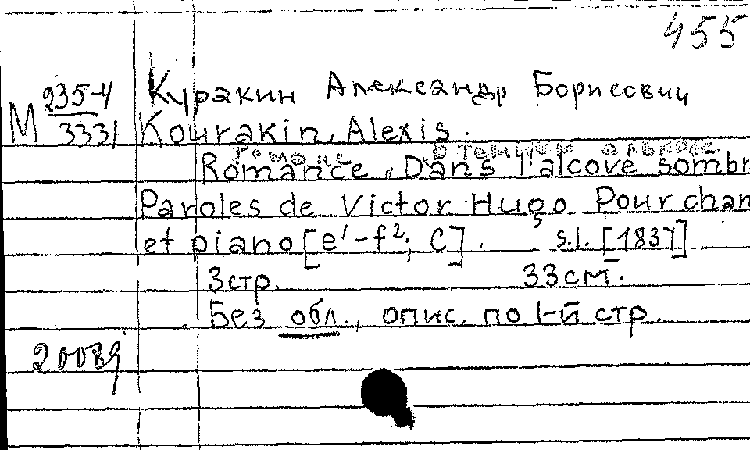 455
М 235-4 Куракин Александр Борисович
3331 Kourakin, Alexis.
Романс в темном алькове
Romance „Dans l'alcove sombr
Paroles de Victor Hugo Pour chan
et piano [e¹-f²; C]. s.l. [1837]
3стр. 33см.
Без обл., опис. по 1-й стр.
20089